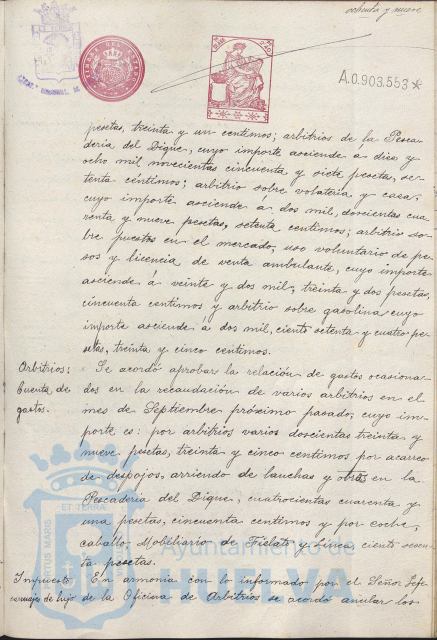 ochenta y nueve
A.0.903.553*
pesetas, treinta y un centimos; arbitrios de la Pesca-
deria del Dique, cuyo importe asciende a diez y
ocho mil novecientas cincuenta y siete pesetas, se-
tenta centimos; arbitrio sobre volateria y caza,
cuyo importe asciende á dos mil, doscientas cua-
renta y nueve pesetas, setenta centimos; arbitrio so-
bre puestos en el mercado, uso voluntario de pe-
sos y licencia de venta ambulante, cuyo importe
asciende á veinte y dos mil, treinta y dos pesetas,
cincuenta centimos y arbitrio sobre gasolina cuyo
importe asciende á dos mil, ciento setenta y cuatro pe-
setas, treinta y cinco centimos.
Arbitrios: Se acordó aprobar la relación de gastos ocasiona-
Cuenta de dos en la recaudación de varios arbitrios en el
gastos. mes de Septiembre próximo pasado, cuyo im-
porte es: por arbitrios varios doscientas treinta y
nueve pesetas, treinta y cinco centimos por acarreo
de despojos, arriendo de lanchas y otros en la
Pescaderia del Dique, cuatrocientas cuarenta y
una pesetas, cincuenta centimos y por coche,
caballo, Mobiliario de Fielato y Linea ciento sesen-
ta pesetas.
Impuesto En armonia con lo informado por el Señor Jefe
de lujo de la Oficina de Arbitrios se acordó anular los
Ayuntamiento de
HUELVA